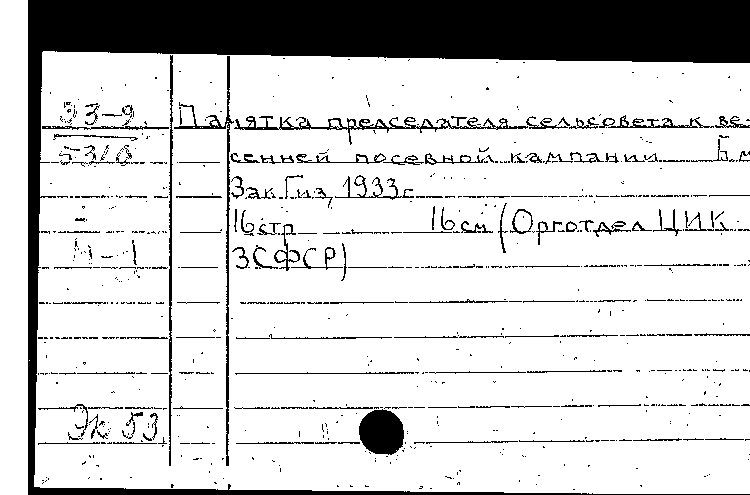 33-9. Памятка председателя сельсовета к ве-
5316 сенней посевной кампании Б м
ЗакГиз, 1933г.
16стр 16см (Орготдел ЦИК
ЗСФСР)
Эк 53